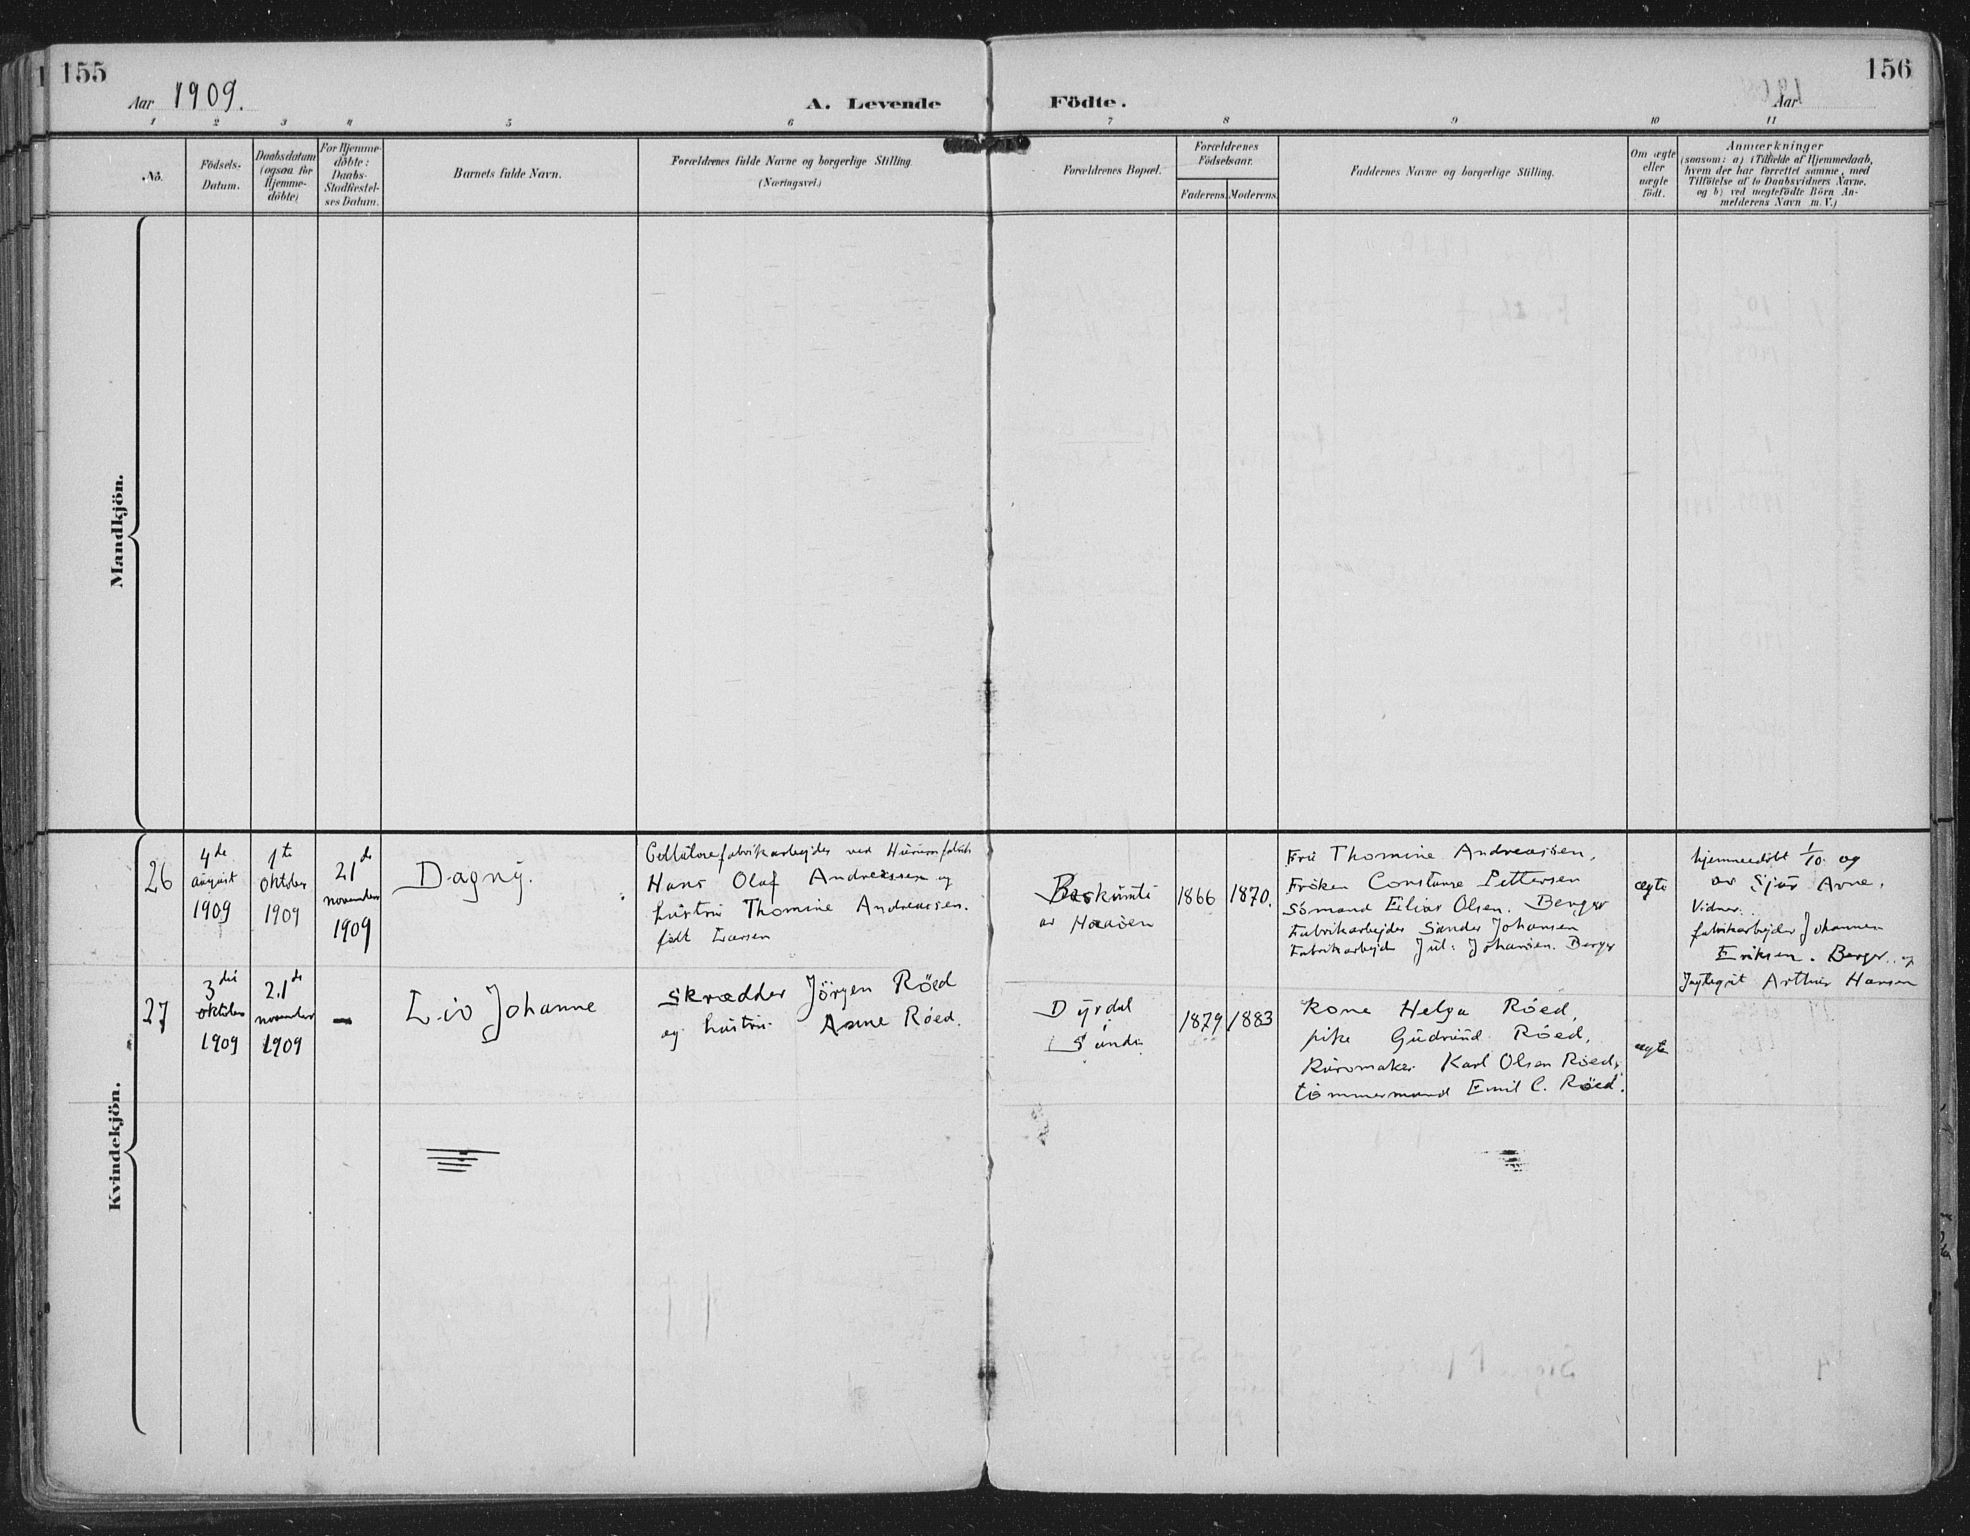 155
Aar 1909.
A. Levende
Födte.
156
Aar
1 2 3 4 5 6 7 8 9 10 11
No.
Födsels-
Datum.
Daabsdatum
(ogsaa for
Hjemme-
döbte)
For Hjemme-
döbte:
Daabs-
Stadfæstel-
ses Datum.
Barnets fulde Navn.
Forældrenes fulde Navne og borgerlige Stilling.
(Næringsvei.)
Forældrenes Bopæl.
Forældrenes
Födselsaar.
Faderens.
Moderens.
Faddernes Navne og borgerlige Stilling.
Om ægte
eller
uægte
födt.
Anmærkninger
(saasom: a) i Tilfælde af Hjemmedaab,
hvem der har forrettet samme, med
Tilföielse af to Daabsvidners Navne,
og b) ved uægtefödte Börn An-
melderens Navn m. V.)
Mandkjön.
Kvindekjön.
26
4de
august
1909
1te
oktober
1909
21de
november
1909
Dagny.
Cellulosefabrikarbejder ved Hurum fabrik
Hans Olaf Andreassen og
hustru Thomine Andreassen.
født Larsen
av Haasen
1866
1870.
Fru Thomine Andreassen,
Frøken Constanse Pettersen
Sømand Elias Olsen. Berger
Fabrikarbejder Sander Johansen
Fabrikarbejder Jul. Johansen. Berger
ægte
hjemmedøbt 1/10. og
av Arne.
Vidner:
fabrikarbejder Johannes
Eriksen. Berger. og
Arthur Hansen
27
3die
oktober
1909
21de
november
1909
—
Liv Johanne
skrædder Jörgen Röed
og hustru Anne Röed.
Dyrdal
Sande
1879
1883
kone Helga Röed,
pike Gudrund Röed,
Karl Olsen Röed,
tømmermand Emil C. Röed.
ægte